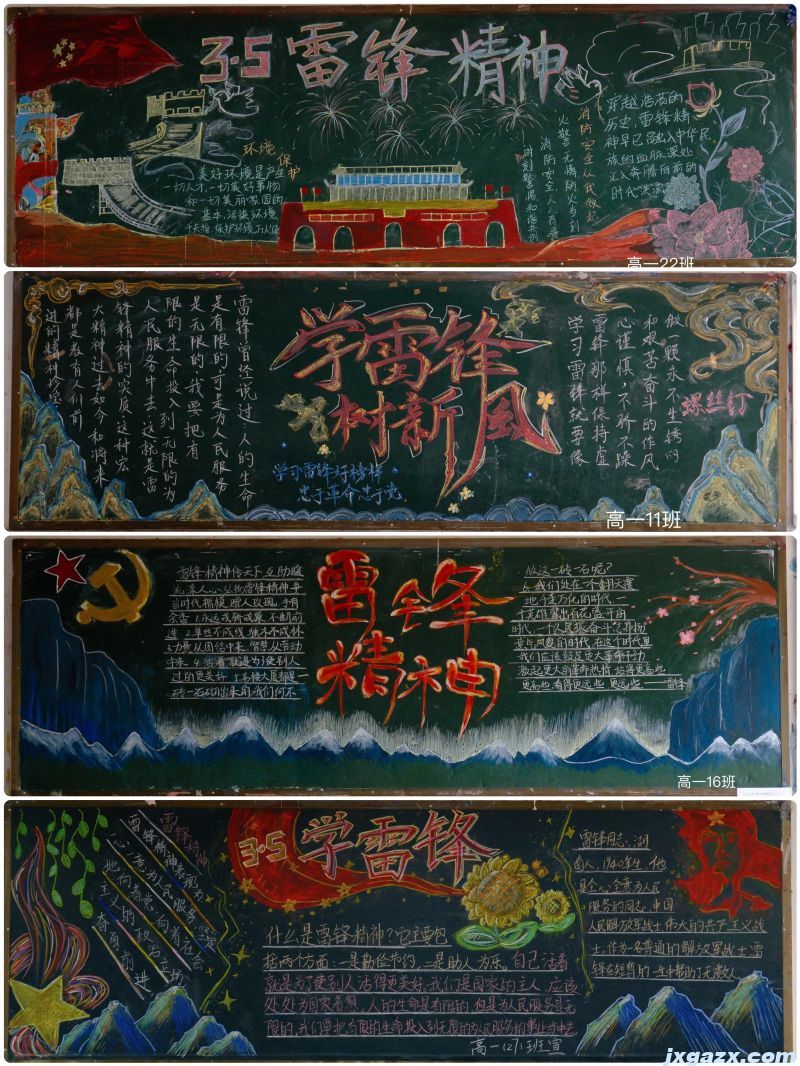 3·5雷锋精神
环境保护
美好环境是产生
一切人才,一切美好事物
和一切美丽家园的
基本,污染环境
消防安全从我做起
火警无情防火当先
消防安全人人有责
穿越浩荡的
历史,雷锋精
神早已融入中华民
族的血脉深处
汇入奔腾向前的
时代
高一22班
学雷锋
树新风
学习雷锋好榜样
忠于革命忠于党
雷锋曾经说过人的生命
是有限的,可是为人民服务
是无限的,我要把有
限的生命投入到无限的为
人民服务中去,这就是雷
锋精神的实质,这种宏
大精神过去如今和将来
都是教育人们前
进的精神珍宝
做一颗永不生锈的
螺丝钉
和艰苦奋斗的作风
心谨慎,不骄不躁
雷锋那样保持虚
学习雷锋就要像
高一11班
雷锋
精神
雷锋精神传天下 互助暖
当时代楷模
进 2.单丝不成线 独木不成林
3.力量从团结中来 智慧从劳动
中来 4.活着就是为了使别人
过的更美好 5.高楼大厦都是一
砖一石砌起来的,我们何不
做这一砖一石呢?
6.我们处在一个翻天覆
地,千变万化的时代,一
时代,一个人民振奋
激起更大的革命热情 站得更高些
更高些 看得更远些 更远些——雷锋
高一16班
3·5 学雷锋
雷锋精神
雷锋精神表现为
心全意为人民服务
主义的政治立场
奋勇前进
什么是雷锋精神?它主要包
括两个方面:一是勤俭节约,二是助人为乐。自己活着
就是为了使别人活得更美好,我们是国家的主人,应该
处处为国家着想,人的生命是有限的,但是为人民服务是无
限的,我们要把有限的生命投入到无限的为人民服务的事业当中去
高一(27)班宣
雷锋同志,湖
南人,1940年生,他
是全心全意为人民
服务的同志,中国
人民解放军战士,伟大的共产主义战
士,作为一名普通的解放军战士,雷
锋在短暂的一生中帮助了无数人
jxgazx.com